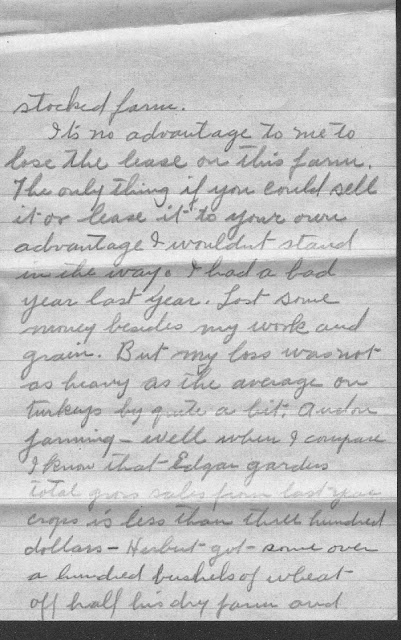 stocked farm.
It's no advantage to me to
lose the lease on this farm.
The only thing if you could sell
it or lease it to your own
advantage I wouldnt stand
in the way. I had a bad
year last year. Lost some
money besides my work and
grain. But my loss was not
as heavy as the average on
turkeys by quite a bit. And on
farming - well when I compare
I know that Edgar gardus
total gross sales from last year
crops is less than three hundred
dollars - Herbert got some over
a hundred bushels of wheat
off half his dry farm and